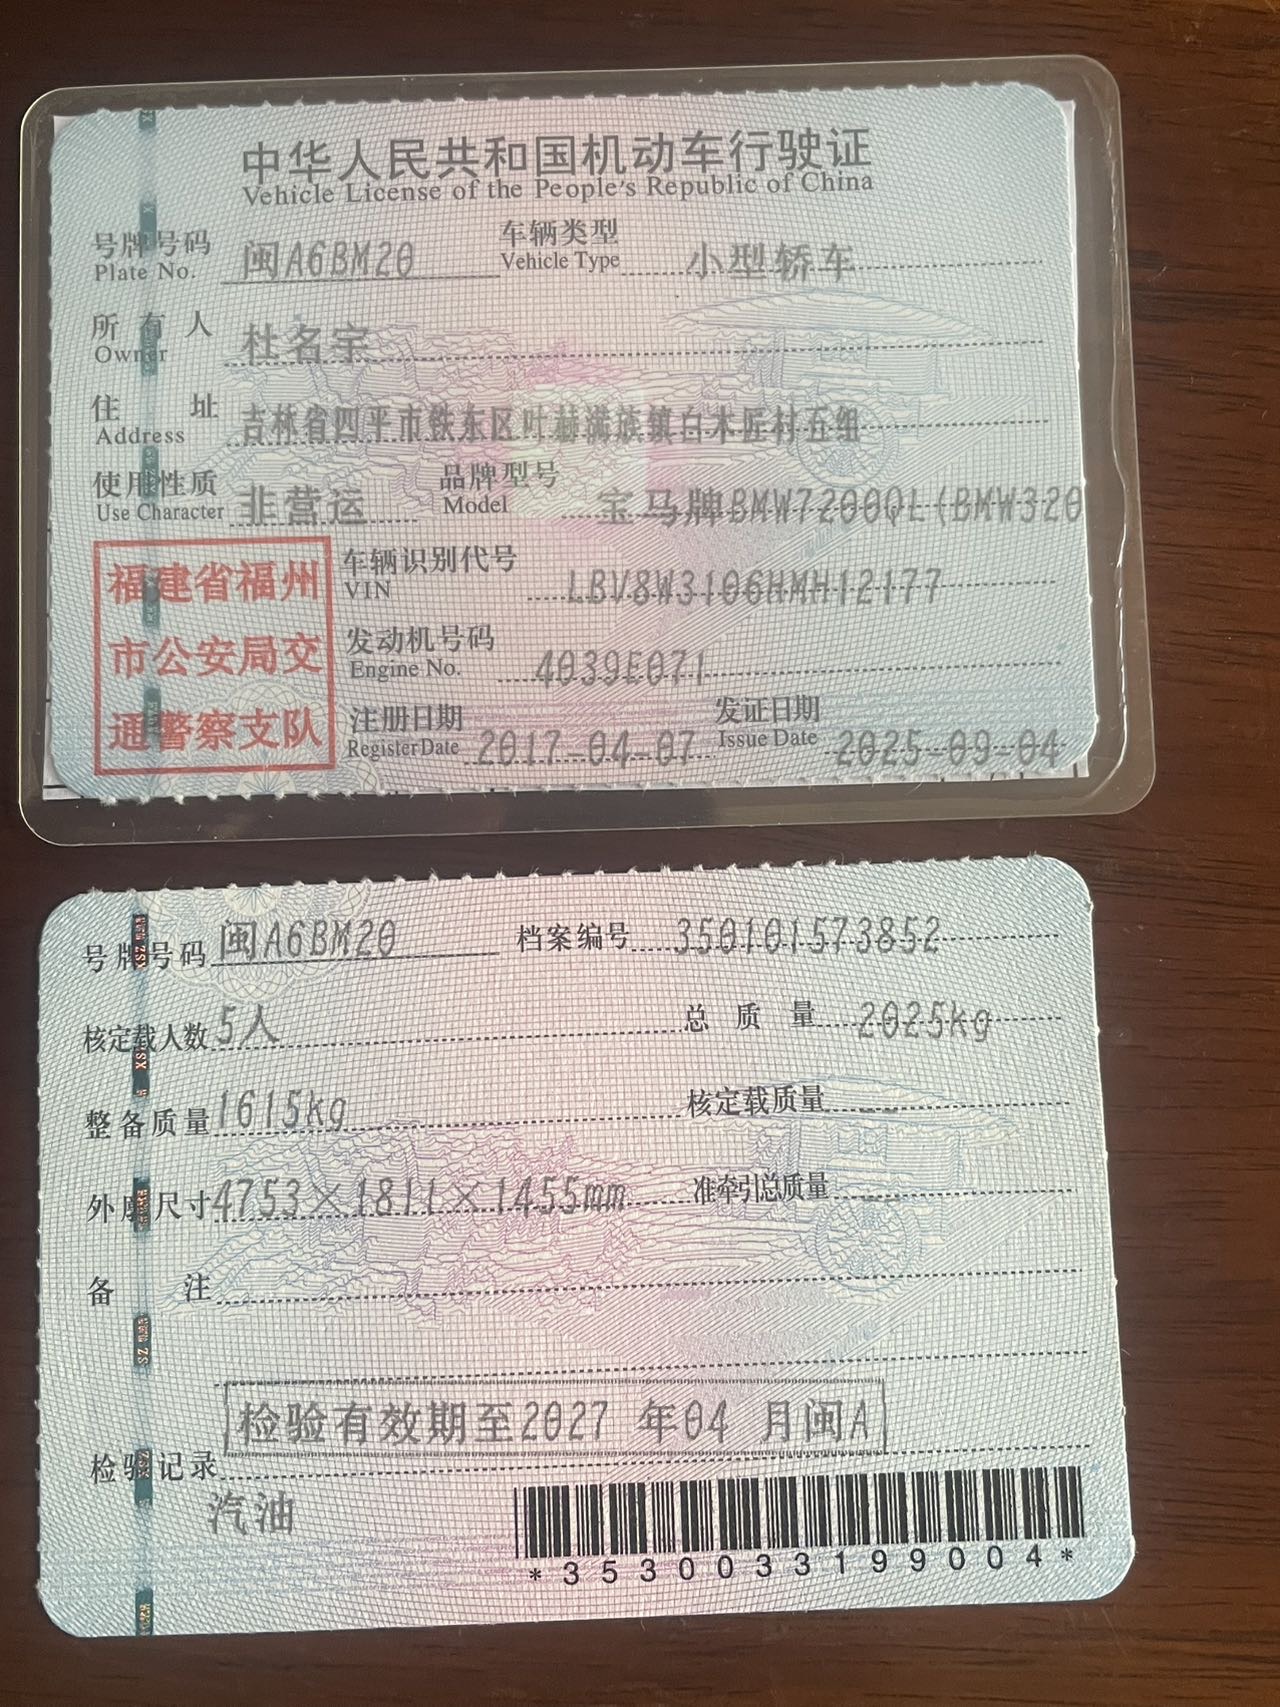 中华人民共和国机动车行驶证
Vehicle License of the People's Republic of China
号牌号码 Plate No. 闽A6BM20 车辆类型 Vehicle Type 小型轿车
所有人 Owner 杜名宇
住址 Address 吉林省四平市铁东区叶赫满族镇白木匠村五组
使用性质 Use Character 非营运 品牌型号 Model 宝马牌BMW7200QL(BMW320
福建省福州
市公安局交
通警察支队
车辆识别代号 VIN LBV8W3106HMH12177
发动机号码 Engine No. 4039E071
注册日期 Register Date 2017-04-07 发证日期 Issue Date 2025-09-04
号牌号码 闽A6BM20 档案编号 350101573852
核定载人数 5人 总质量 2025kg
整备质量 1615kg 核定载质量 --
外廓尺寸 4753×1811×1455mm 准牵引总质量
备注
检验有效期至2027年04月闽A
检验记录
汽油
*3530033199004*